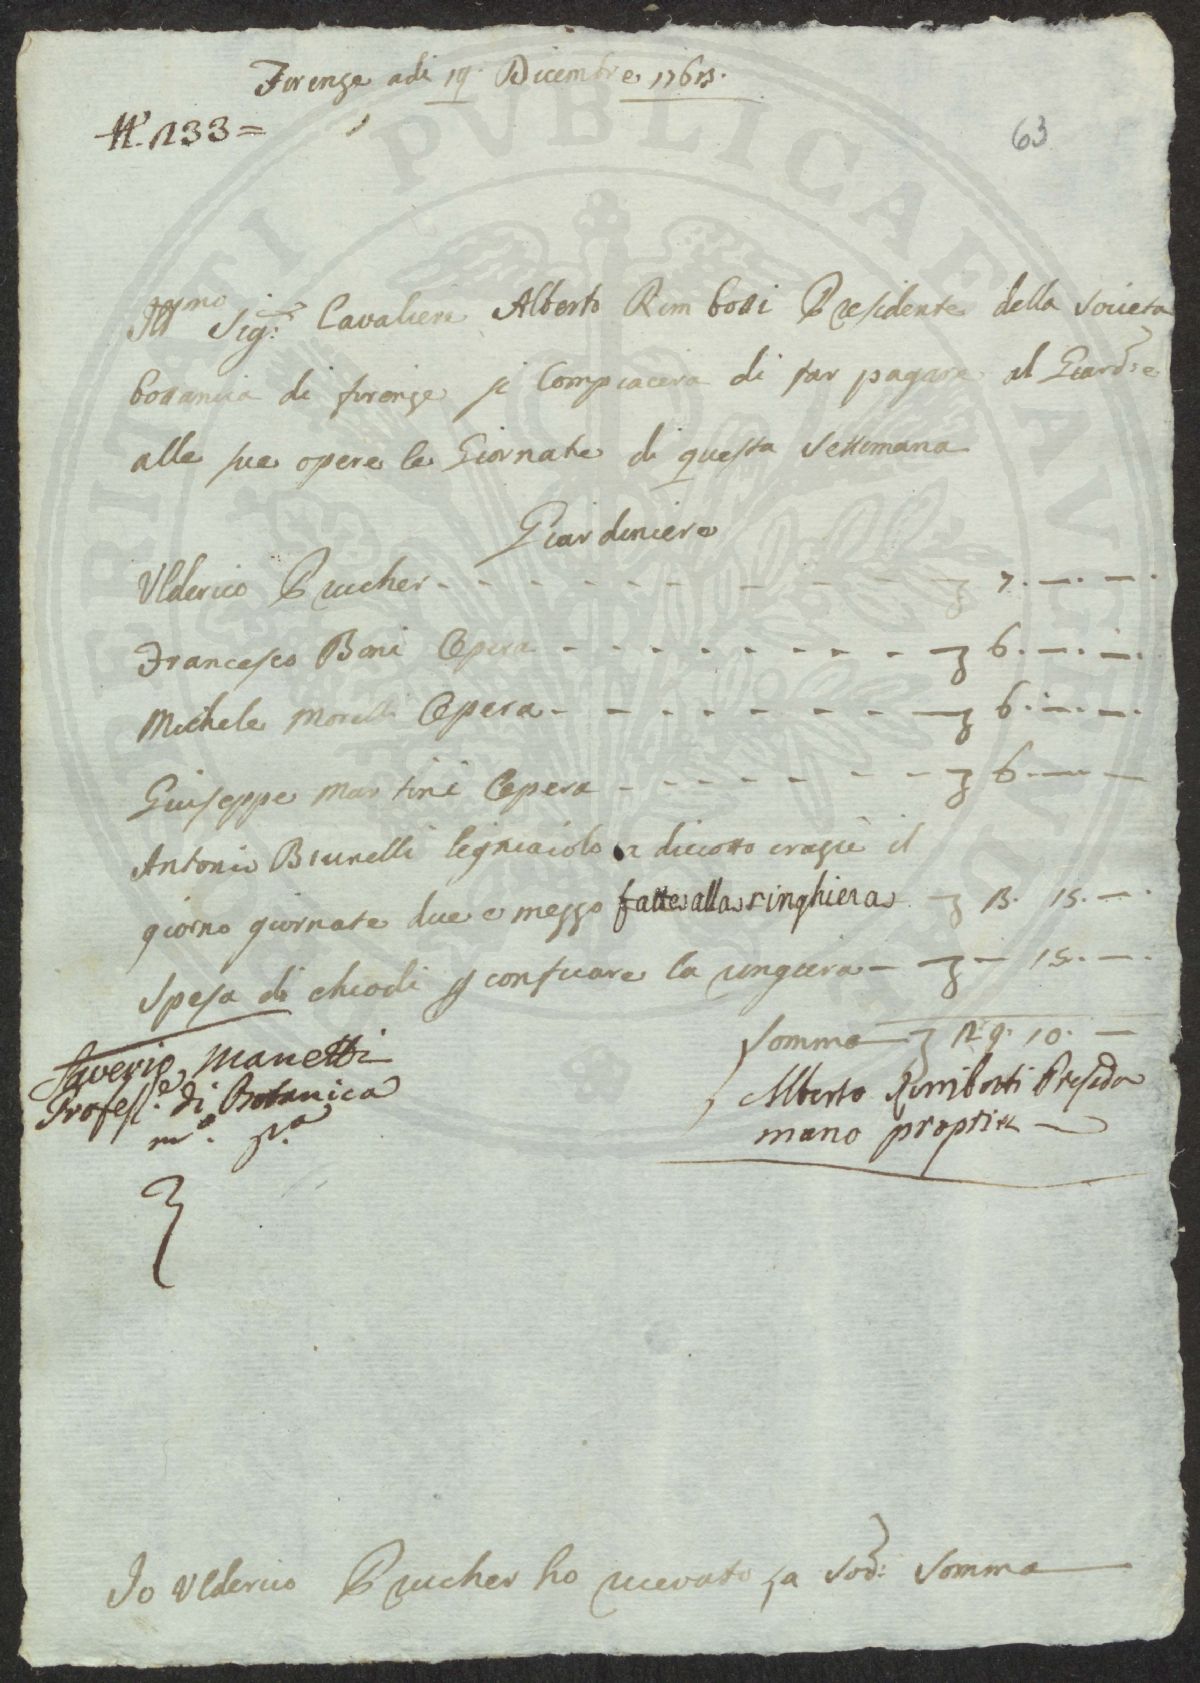 Firenze adi 19. Dicembre 1763.
N. 133=
63
Ill.mo Sig.r Cavaliere Alberto Rimbotti Presidente della Società
bottanica di firenze si Compiacera di far pagare al Giard.e e
alle sue opere le Giornate di questa Settimana
Giardiniere
Vlderico Prucher - - - - - - - - - - 7. —. —.
Francesco Boni Opera - - - - - - - - 6. —. —.
Michele Morelli Opera - - - - - - - - 6. —. —.
Giuseppe Martini Opera - - - - - - - 6. — —
Antonio Brunelli legniaiolo a diciotto crazie il
giorno giornate due e mezzo fatte alla ringhiera 3. 15. —.
Spesa di chiodi p conficare la ringiera — — 15. —.
Somma 29. 10. —
Saverio Manetti
Profess.e di Botanica
m.o p.a
Alberto Rimbotti Presid.e
mano propria
Io Vlderico Prucher ho ricevuto la Sod.a Somma